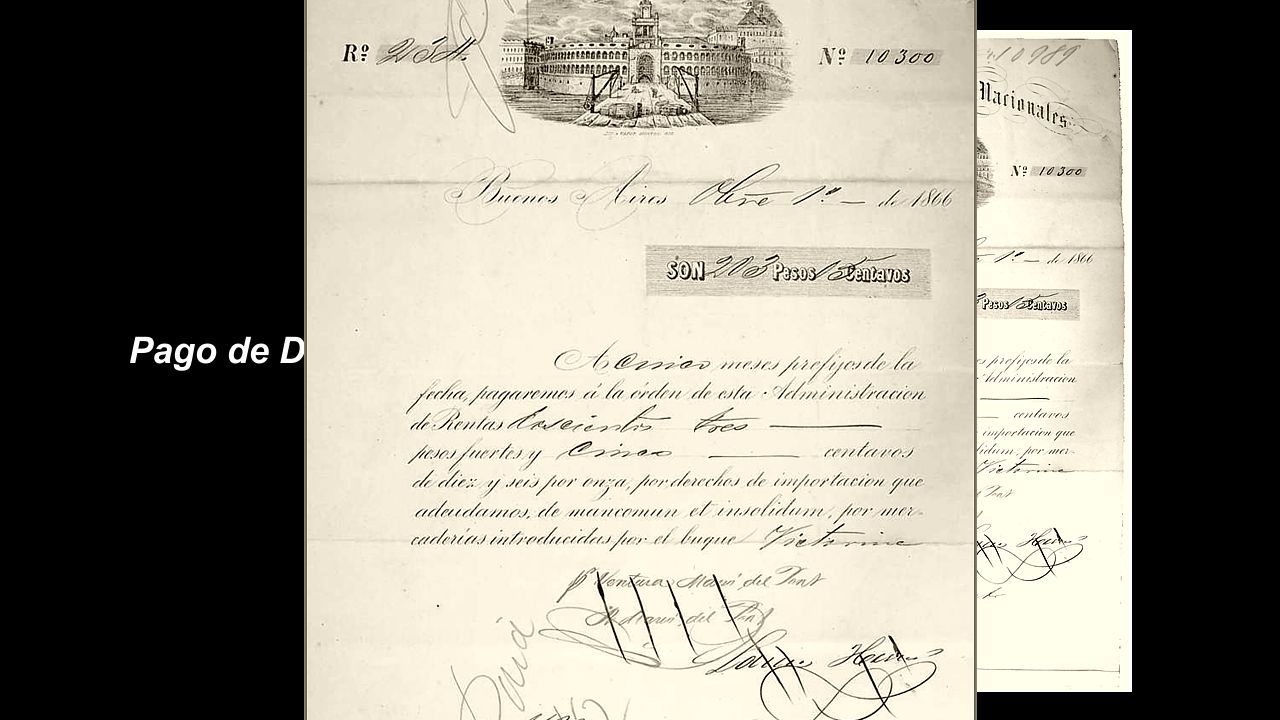 Rº
Nº 10300
Buenos Aires 8bre 1º — de 1866
SON 203 Pesos 15 Centavos
A cinco meses prefijos de la
fecha, pagaremos á la órden de esta Administracion
de Rentas doscientos tres
pesos fuertes y cinco centavos
de diez y seis por onza, por derechos de importacion que
adeudamos, de mancomun et insolidum, por mer-
caderias introducidas por el buque Victorine
p Ventura Marcó del Pont
M. Marcó del Pont
Pago de D
10989
Nacionales
Nº 10300
1º — de 1866
Pesos 15 Centavos
es prefijos de la
Administracion
centavos
importacion que
lidum, por mer-
Victorine